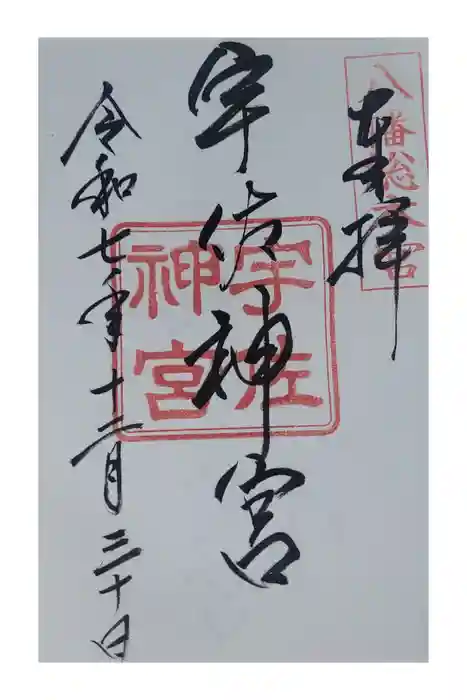 奉拝
八幡総本宮
宇佐神宮
宇佐神宮
令和七年十二月三十日